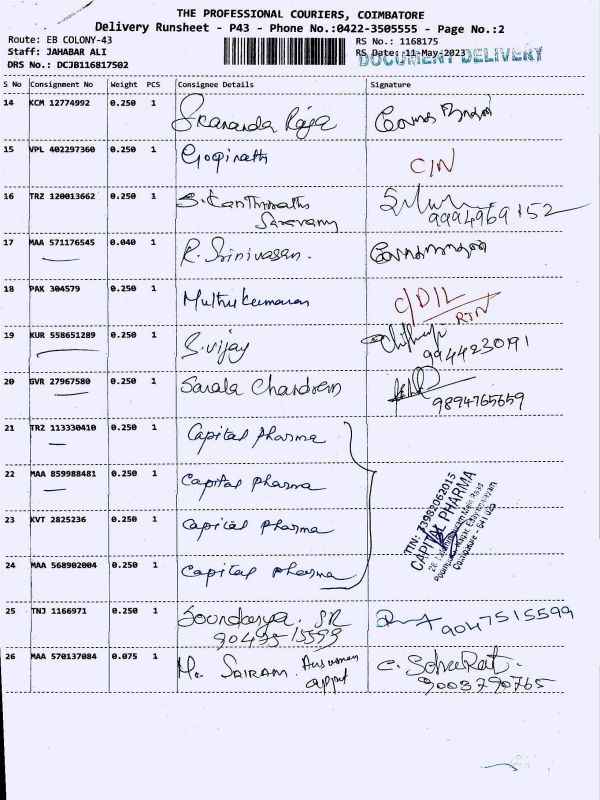 THE PROFESSIONAL COURIERS, COIMBATORE
Delivery Runsheet - P43 - Phone No.:0422-3505555 - Page No.:2
Route: EB COLONY-43 RS No.: 1168175
Staff: JAHABAR ALI RS Date: 11-May-2023
DOCUMENT DELIVERY
DRS No.: DCJB116817502
S No Consignment No Weight PCS Consignee Details Signature
14 KCM 12774992 0.250 1 Raja
15 VPL 402297360 0.250 1 Gopinath C/N
16 TRZ 120013662 0.250 1
9994969152
17 MAA 571176545 0.040 1 R. Srinivasan.
18 PAK 304579 0.250 1 Muthukumaran C/D/L
RTN
19 KUR 558651289 0.250 1 S. vijay
9944230191
20 GVR 27967580 0.250 1 Sarala
9894765659
21 TRZ 113330410 0.250 1 Capital Pharma
22 MAA 859988481 0.250 1 Capital Pharma
23 KVT 2825236 0.250 1 Capital Pharma
24 MAA 568902004 0.250 1 Capital Pharma
TIN: 33982062015
CAPITAL PHARMA
Coimbatore - 641
25 TNJ 1166971 0.250 1 Soundarya. SR 9047515599
26 MAA 570137084 0.075 1 SRIRAM.
9003790765